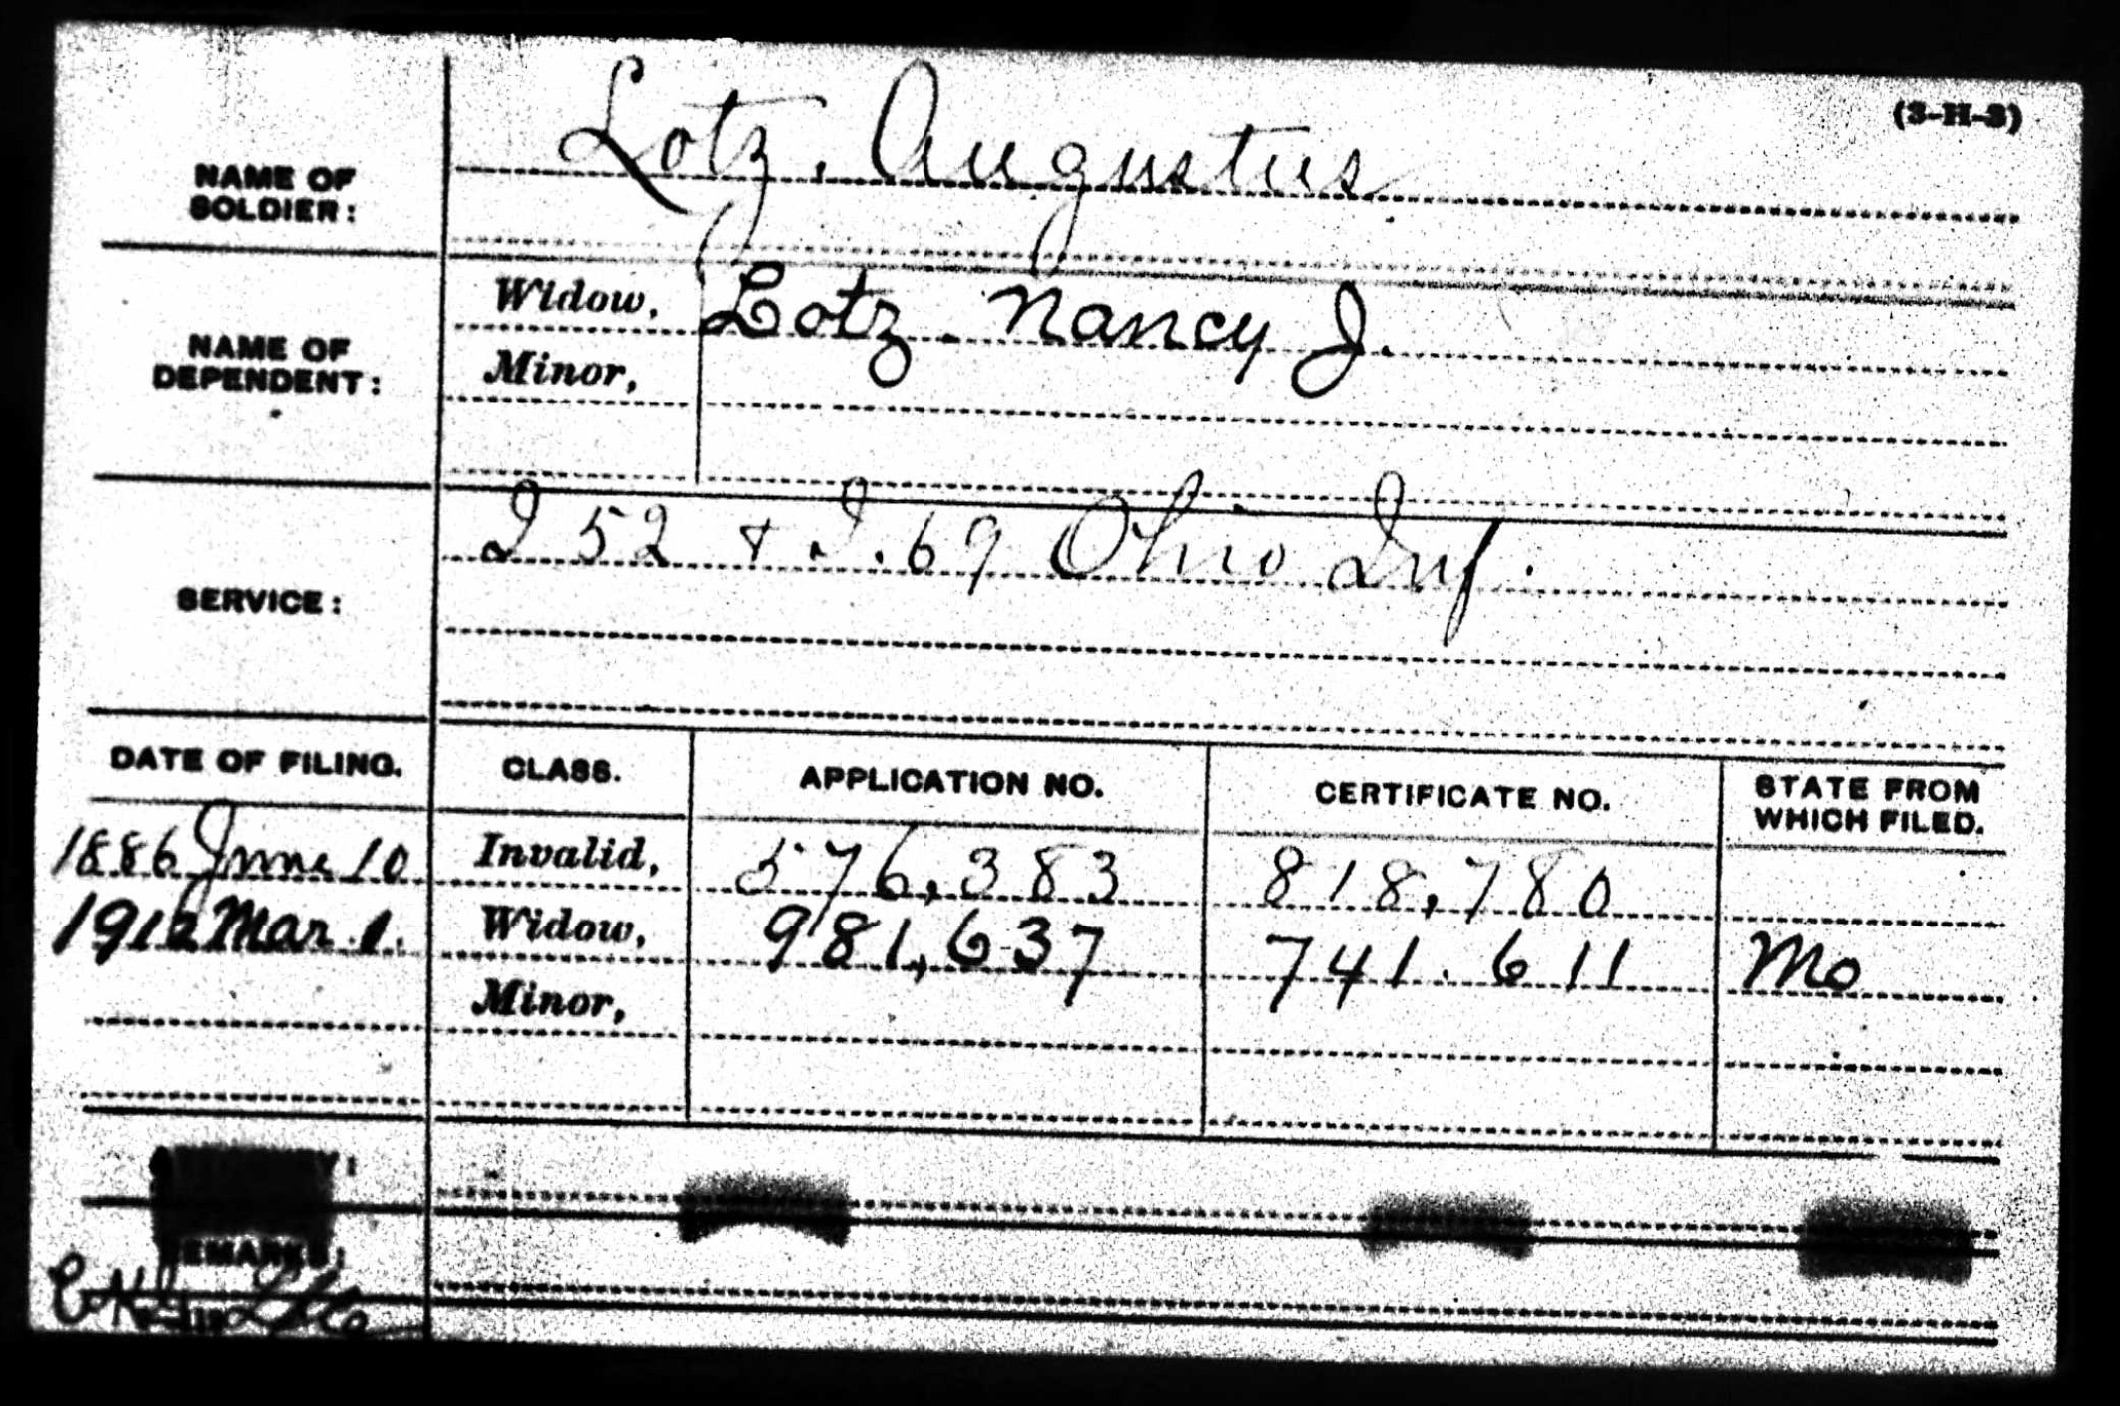 (3-H-3)
NAME OF SOLDIER: Lotz, Augustus
NAME OF DEPENDENT:
Widow, Lotz. Nancy J.
Minor,
SERVICE: I 52 & I. 69 Ohio Inf.
DATE OF FILING. CLASS. APPLICATION NO. CERTIFICATE NO. STATE FROM WHICH FILED.
1886 June 10 Invalid, 576,383 818,780
1912 Mar. 1. Widow, 981,637 741.611 Mo
Minor,
REMARKS: